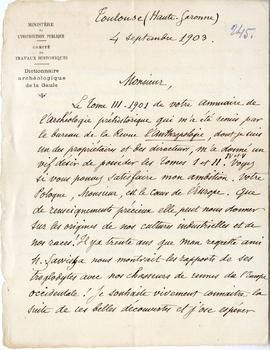 MINISTÈRE
DE
L'INSTRUCTION PUBLIQUE
COMITÉ
DES
TRAVAUX HISTORIQUES
Dictionnaire
archéologique
de la Gaule
Toulouse (Haute-Garonne)
4 septembre 1903.
245.
Monsieur,
Le tome III-1901 de votre annuaire de
l'Archéologie préhistorique qui m'a été remis par
le bureau de la Revue l'Anthropologie, dont je suis
un des propriétaires et des directeurs, m'a donné un
vif désir de posséder les tomes I et II. Voyez
si vous pouvez satisfaire mon ambition. Votre
Pologne, Monsieur, est le cœur de l'Europe. Que
de renseignements précieux elle peut nous donner
sur les origines de nos cultures industrielles et de
nos races! Il y a trente ans que mon regretté ami
nous montrait les rapports de ses
troglodytes avec nos chasseurs de rennes de l'Europe
occidentale! Je souhaite vivement connaître la
suite de ces belles découvertes et j'ose espérer